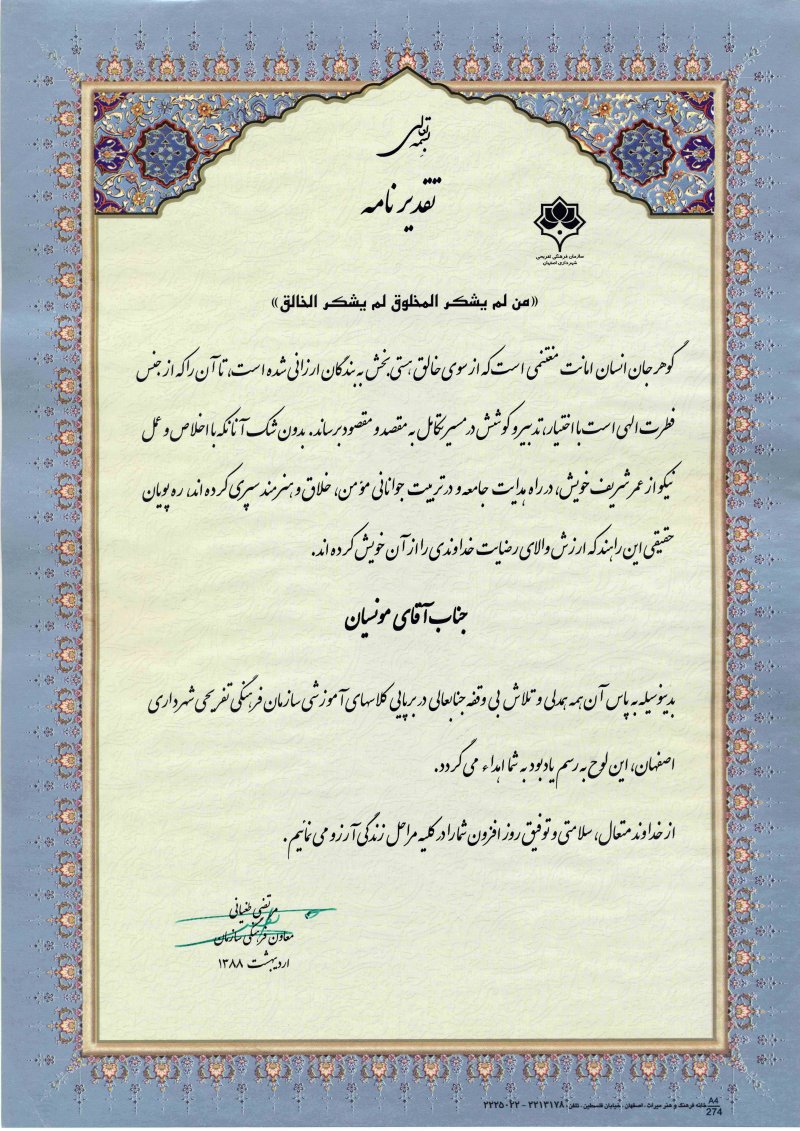 بسمه تعالی
تقدیر نامه
سازمان فرهنگی تفریحی
شهرداری اصفهان
«من لم یشکر المخلوق لم یشکر الخالق»
گوهر جان انسان امانت مغتنمی است که از سوی خالق هستی بخش به بندگان ارزانی شده است، تا آن را که از جنس
فطرت الهی است با اختیار، تدبیر و کوشش در مسیر تکامل به مقصد و مقصود برساند. بدون شک آنانکه با اخلاص و عمل
نیکو از عمر شریف خویش، در راه هدایت جامعه و در تربیت جوانانی مؤمن، خلاق و هنرمند سپری کرده اند، ره پویان
حقیقی این راهند که ارزش والای رضایت خداوندی را از آن خویش کرده اند.
جناب آقای مونسیان
بدینوسیله به پاس آن همه همدلی و تلاش بی وقفه جنابعالی در برپایی کلاسهای آموزشی سازمان فرهنگی تفریحی شهرداری
اصفهان، این لوح به رسم یادبود به شما اهداء می گردد.
از خداوند متعال، سلامتی و توفیق روز افزون شما را در کلیه مراحل زندگی آرزو می نمائیم.
مرتضی طغیانی
معاون فرهنگی سازمان
اردیبهشت ۱۳۸۸
خانه فرهنگ و هنر میراث . اصفهان . خیابان فلسطین . تلفن : ۲۲۱۳۱۷۸ - ۲۲۲۵۰۲۲
A4
274